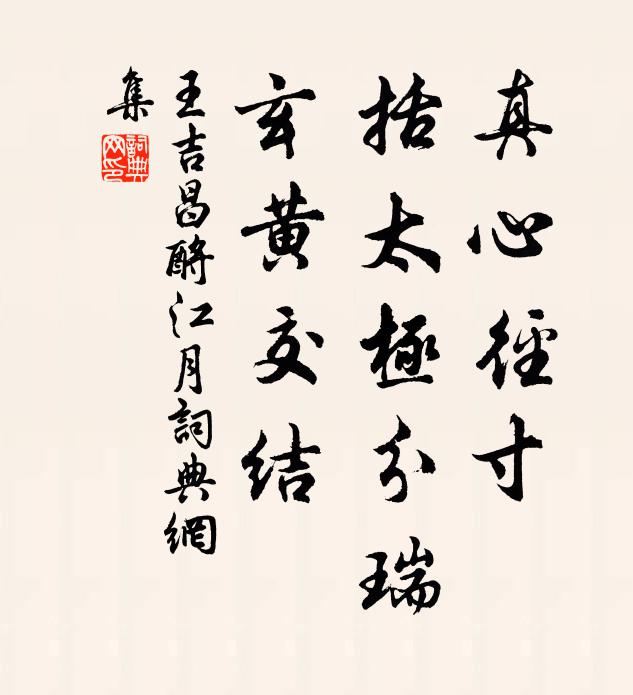 真心徑寸
括太極分瑞
玄黃交結
王吉昌酹江月詞典網
集
詞典網印